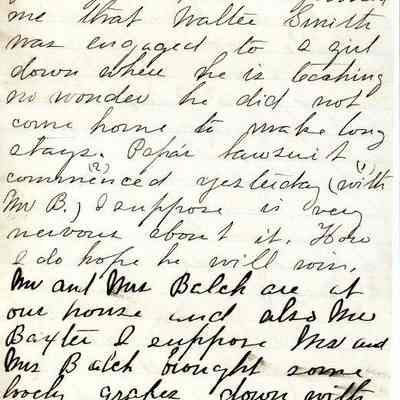 me that Walter Smith
was engaged to a girl
down where he is teaching
no wonder he did not
come home to make long
stays. Papa's lawsuit
(2) (1)
commenced yesterday (with
Mr B.) I suppose is very
nervous about it. How
I do hope he will win.
Mr and Mrs Balch are at
our house and also Mr
Baxter I suppose Mr and
Mrs Balch brought some
lovely grapes down with